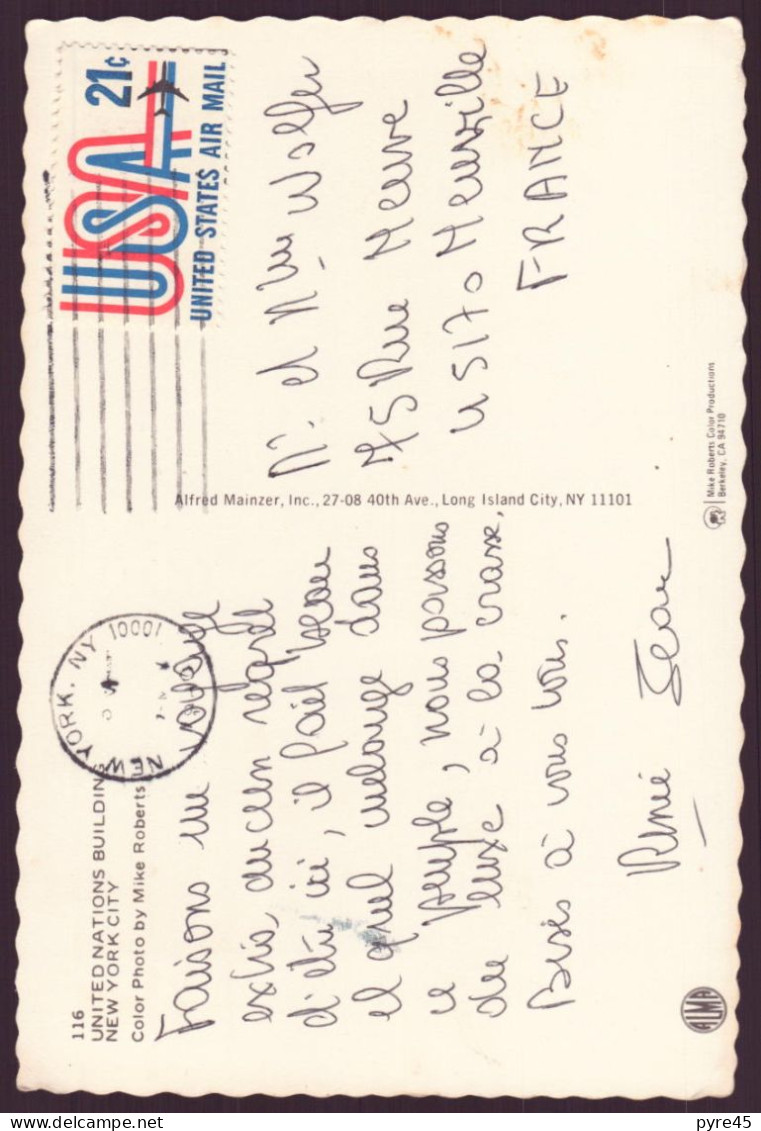 116
UNITED NATIONS BUILDING
NEW YORK CITY
Color Photo by Mike Roberts
NEW YORK, NY 10001
Faisons un voyage
extra, aucun regret
d'être ici, il fait beau
et quel mélange dans
ce peuple, nous passons
du luxe à la crasse.
Bises à vous tous.
Renée Jean
ALMA
Alfred Mainzer, Inc., 27-08 40th Ave., Long Island City, NY 11101
USA 21c
UNITED STATES AIR MAIL
M. et Mme Wolfer
Rue Neuve
FRANCE
Mike Roberts Color Productions
Berkeley, CA 94710
pyre45